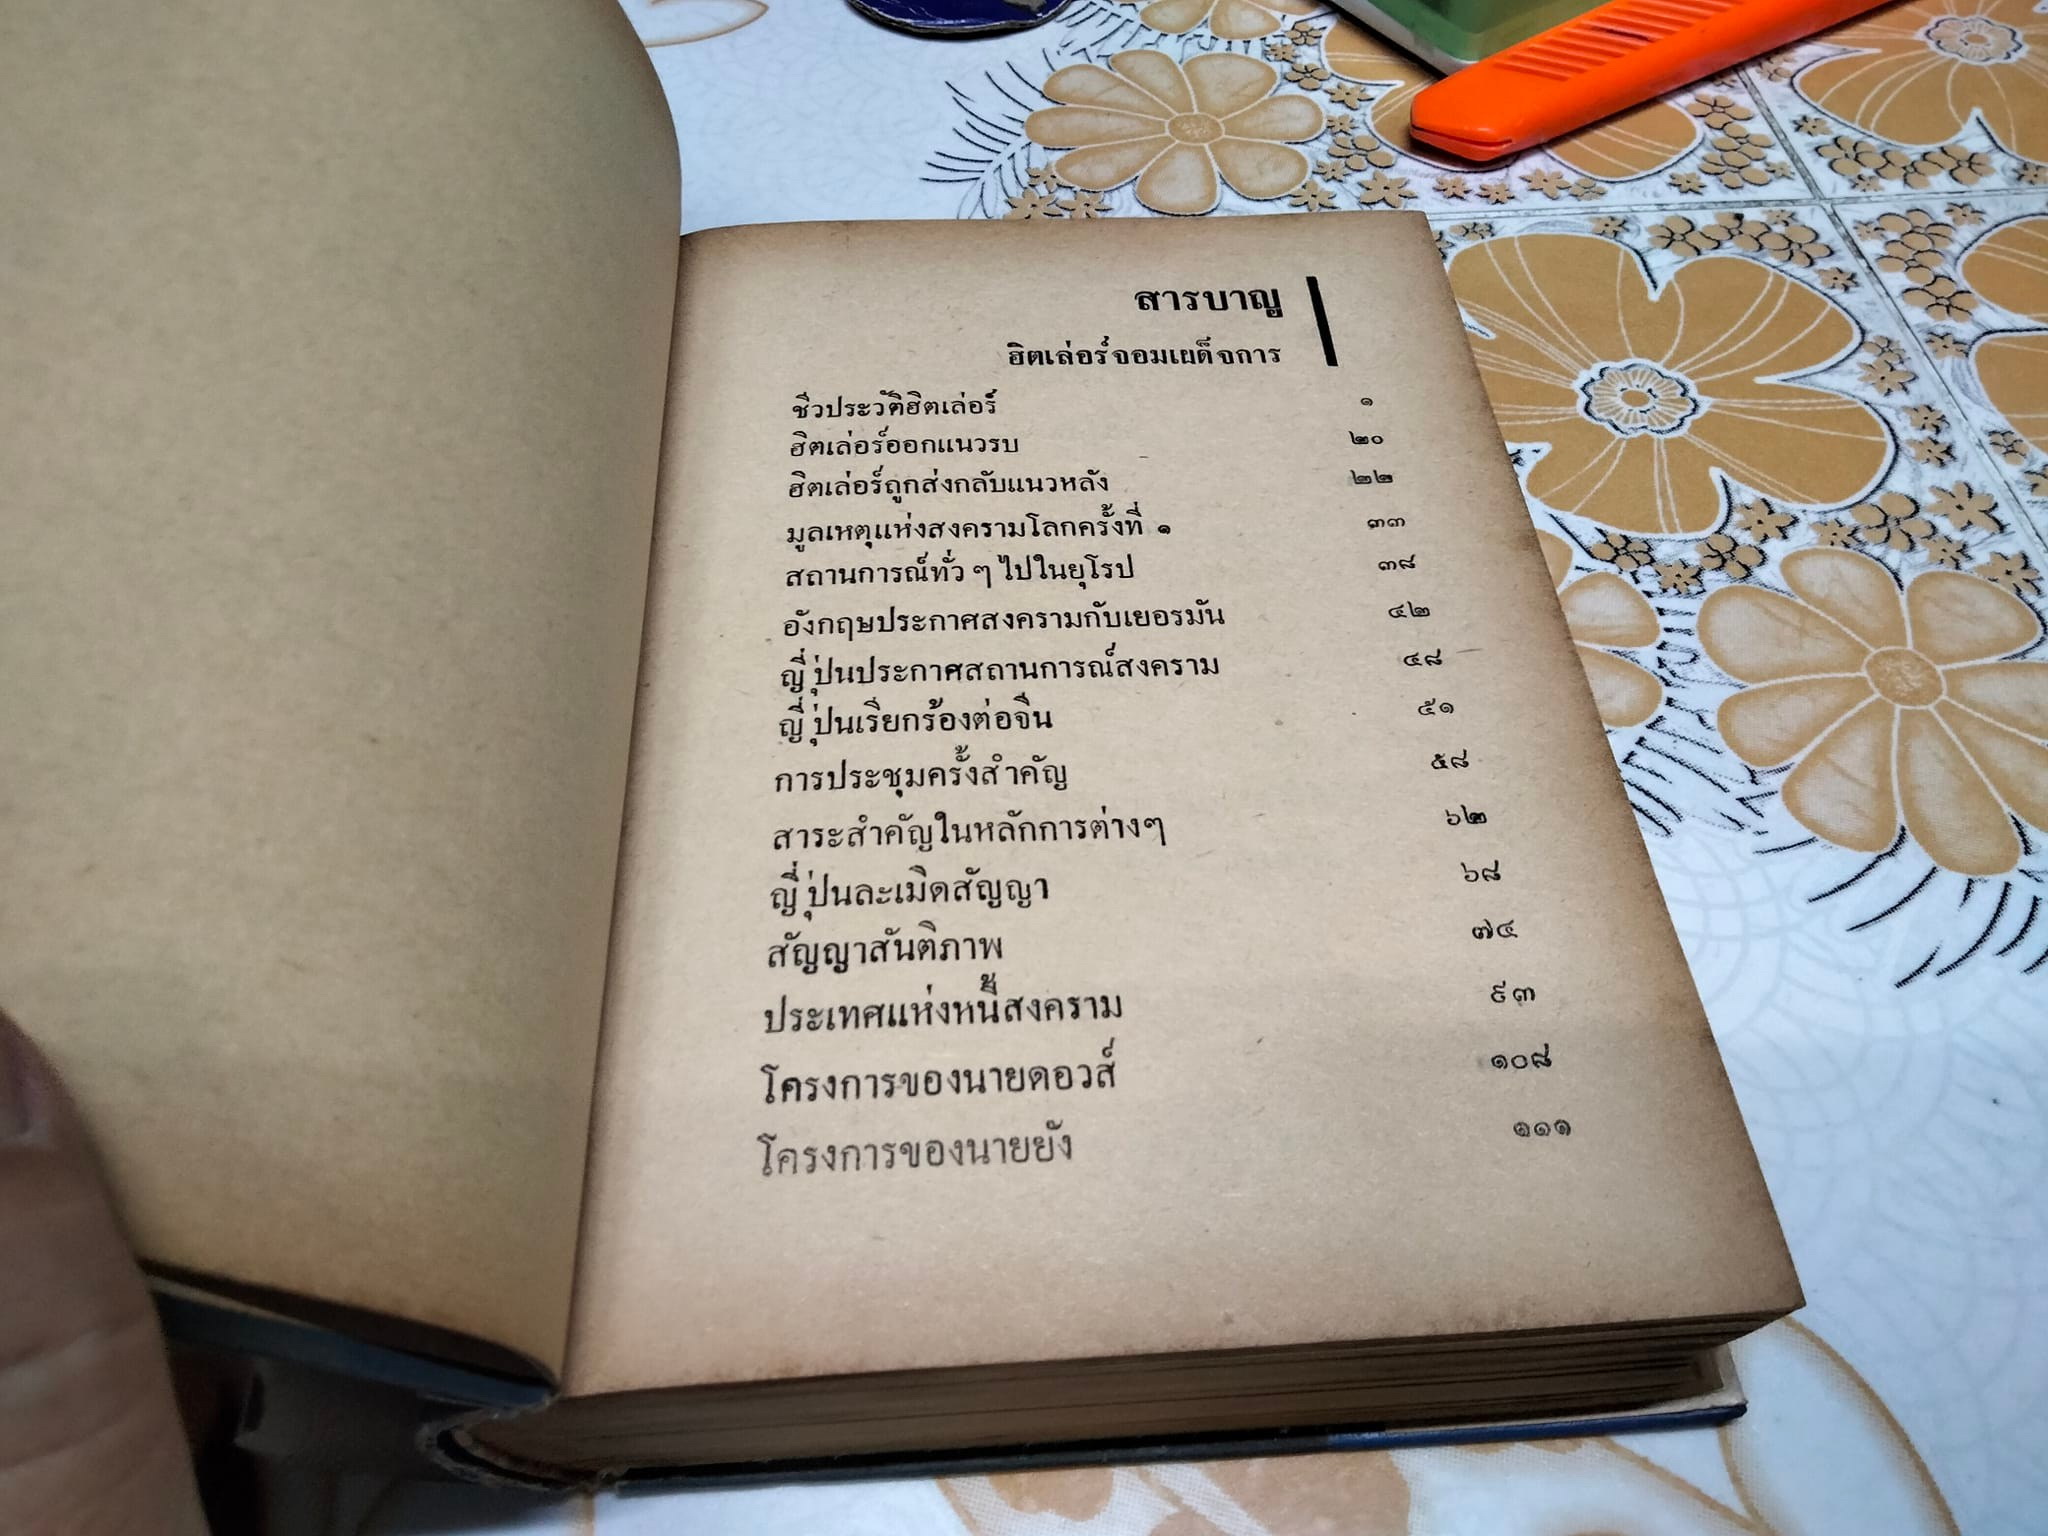 สารบาญ
ฮิตเล่อร์จอมเผด็จการ
ชีวประวัติฮิตเล่อร์ ๑
ฮิตเล่อร์ออกแนวรบ ๒๐
ฮิตเล่อร์ถูกส่งกลับแนวหลัง ๒๒
มูลเหตุแห่งสงครามโลกครั้งที่ ๑ ๓๓
สถานการณ์ทั่ว ๆ ไปในยุโรป ๓๘
อังกฤษประกาศสงครามกับเยอรมัน ๔๒
ญี่ปุ่นประกาศสถานการณ์สงคราม ๔๘
ญี่ปุ่นเรียกร้องต่อจีน ๕๑
การประชุมครั้งสำคัญ ๕๘
สาระสำคัญในหลักการต่างๆ ๖๒
ญี่ปุ่นละเมิดสัญญา ๖๘
สัญญาสันติภาพ ๗๔
ประเทศแห่งหนี้สงคราม ๙๓
โครงการของนายดอวส์ ๑๐๘
โครงการของนายยัง ๑๑๑